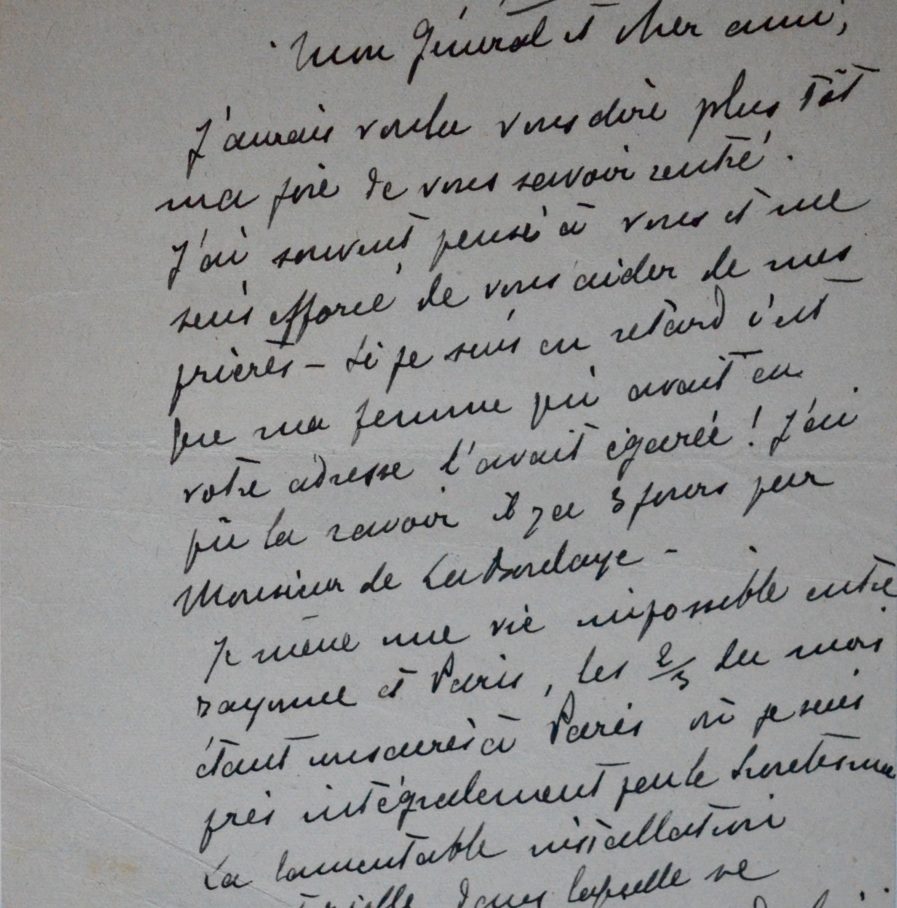 Mon Général et cher ami,
J'aurais voulu vous dire plus tôt
ma joie de vous savoir rentré.
J'ai souvent pensé à vous et me
suis efforcé de vous aider de mes
prières – Si je suis en retard c'est
que ma femme qui avait eu
votre adresse l'avait égarée ! J'ai
pu la ravoir il y a 3 jours par
Monsieur de
Je mène une vie impossible entre
Bayonne et Paris, les 2/3 du mois
étant à Paris où je suis
pris intégralement par le
La lamentable installation
dans laquelle